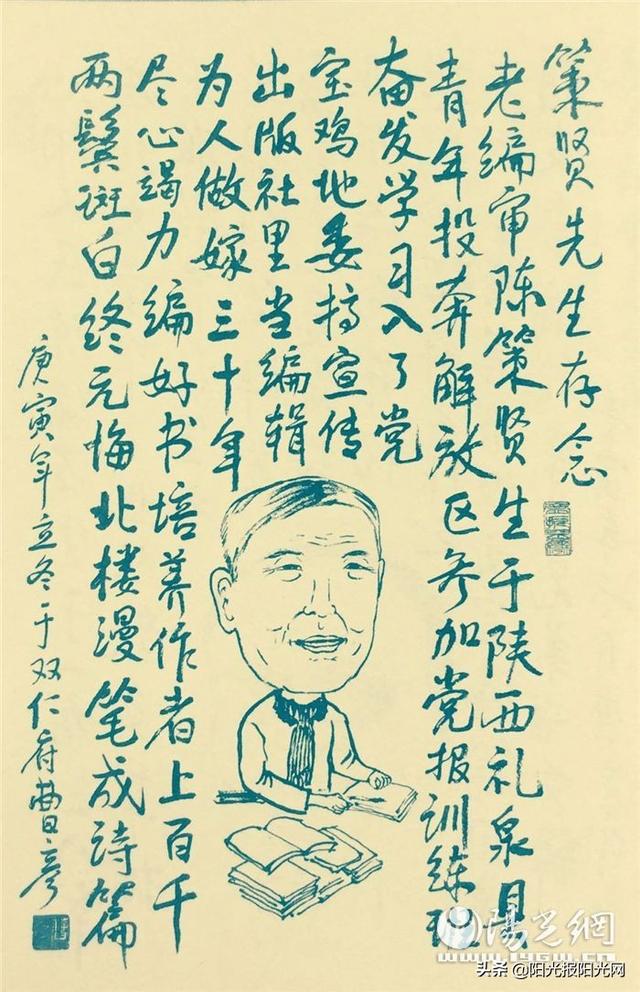 策贤先生存念
老编审陈策贤生于陕西礼泉县
青年投奔解放区参加党报训练班
奋发学习入了党
宝鸡地委搞宣传
出版社里当编辑
为人做嫁三十年
尽心竭力编好书培养作者上百千
两鬓斑白终无悔北楼漫笔成诗篇
庚寅年立冬于双仁府曹彦
陽光網
www.iygw.cn
头条 @阳光报阳光网